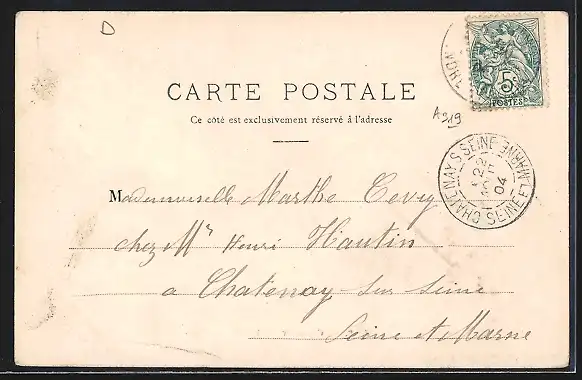 D
NDRE
5c
POSTES
CARTE POSTALE
Ce côté est exclusivement réservé à l'adresse
A 919
CHATENAY S SEINE SEINE ET MARNE
22
04
Mademoiselle Marthe Tevy
chez Mr Henri Hautin
a Chatenay sur Seine
Seine et Marne